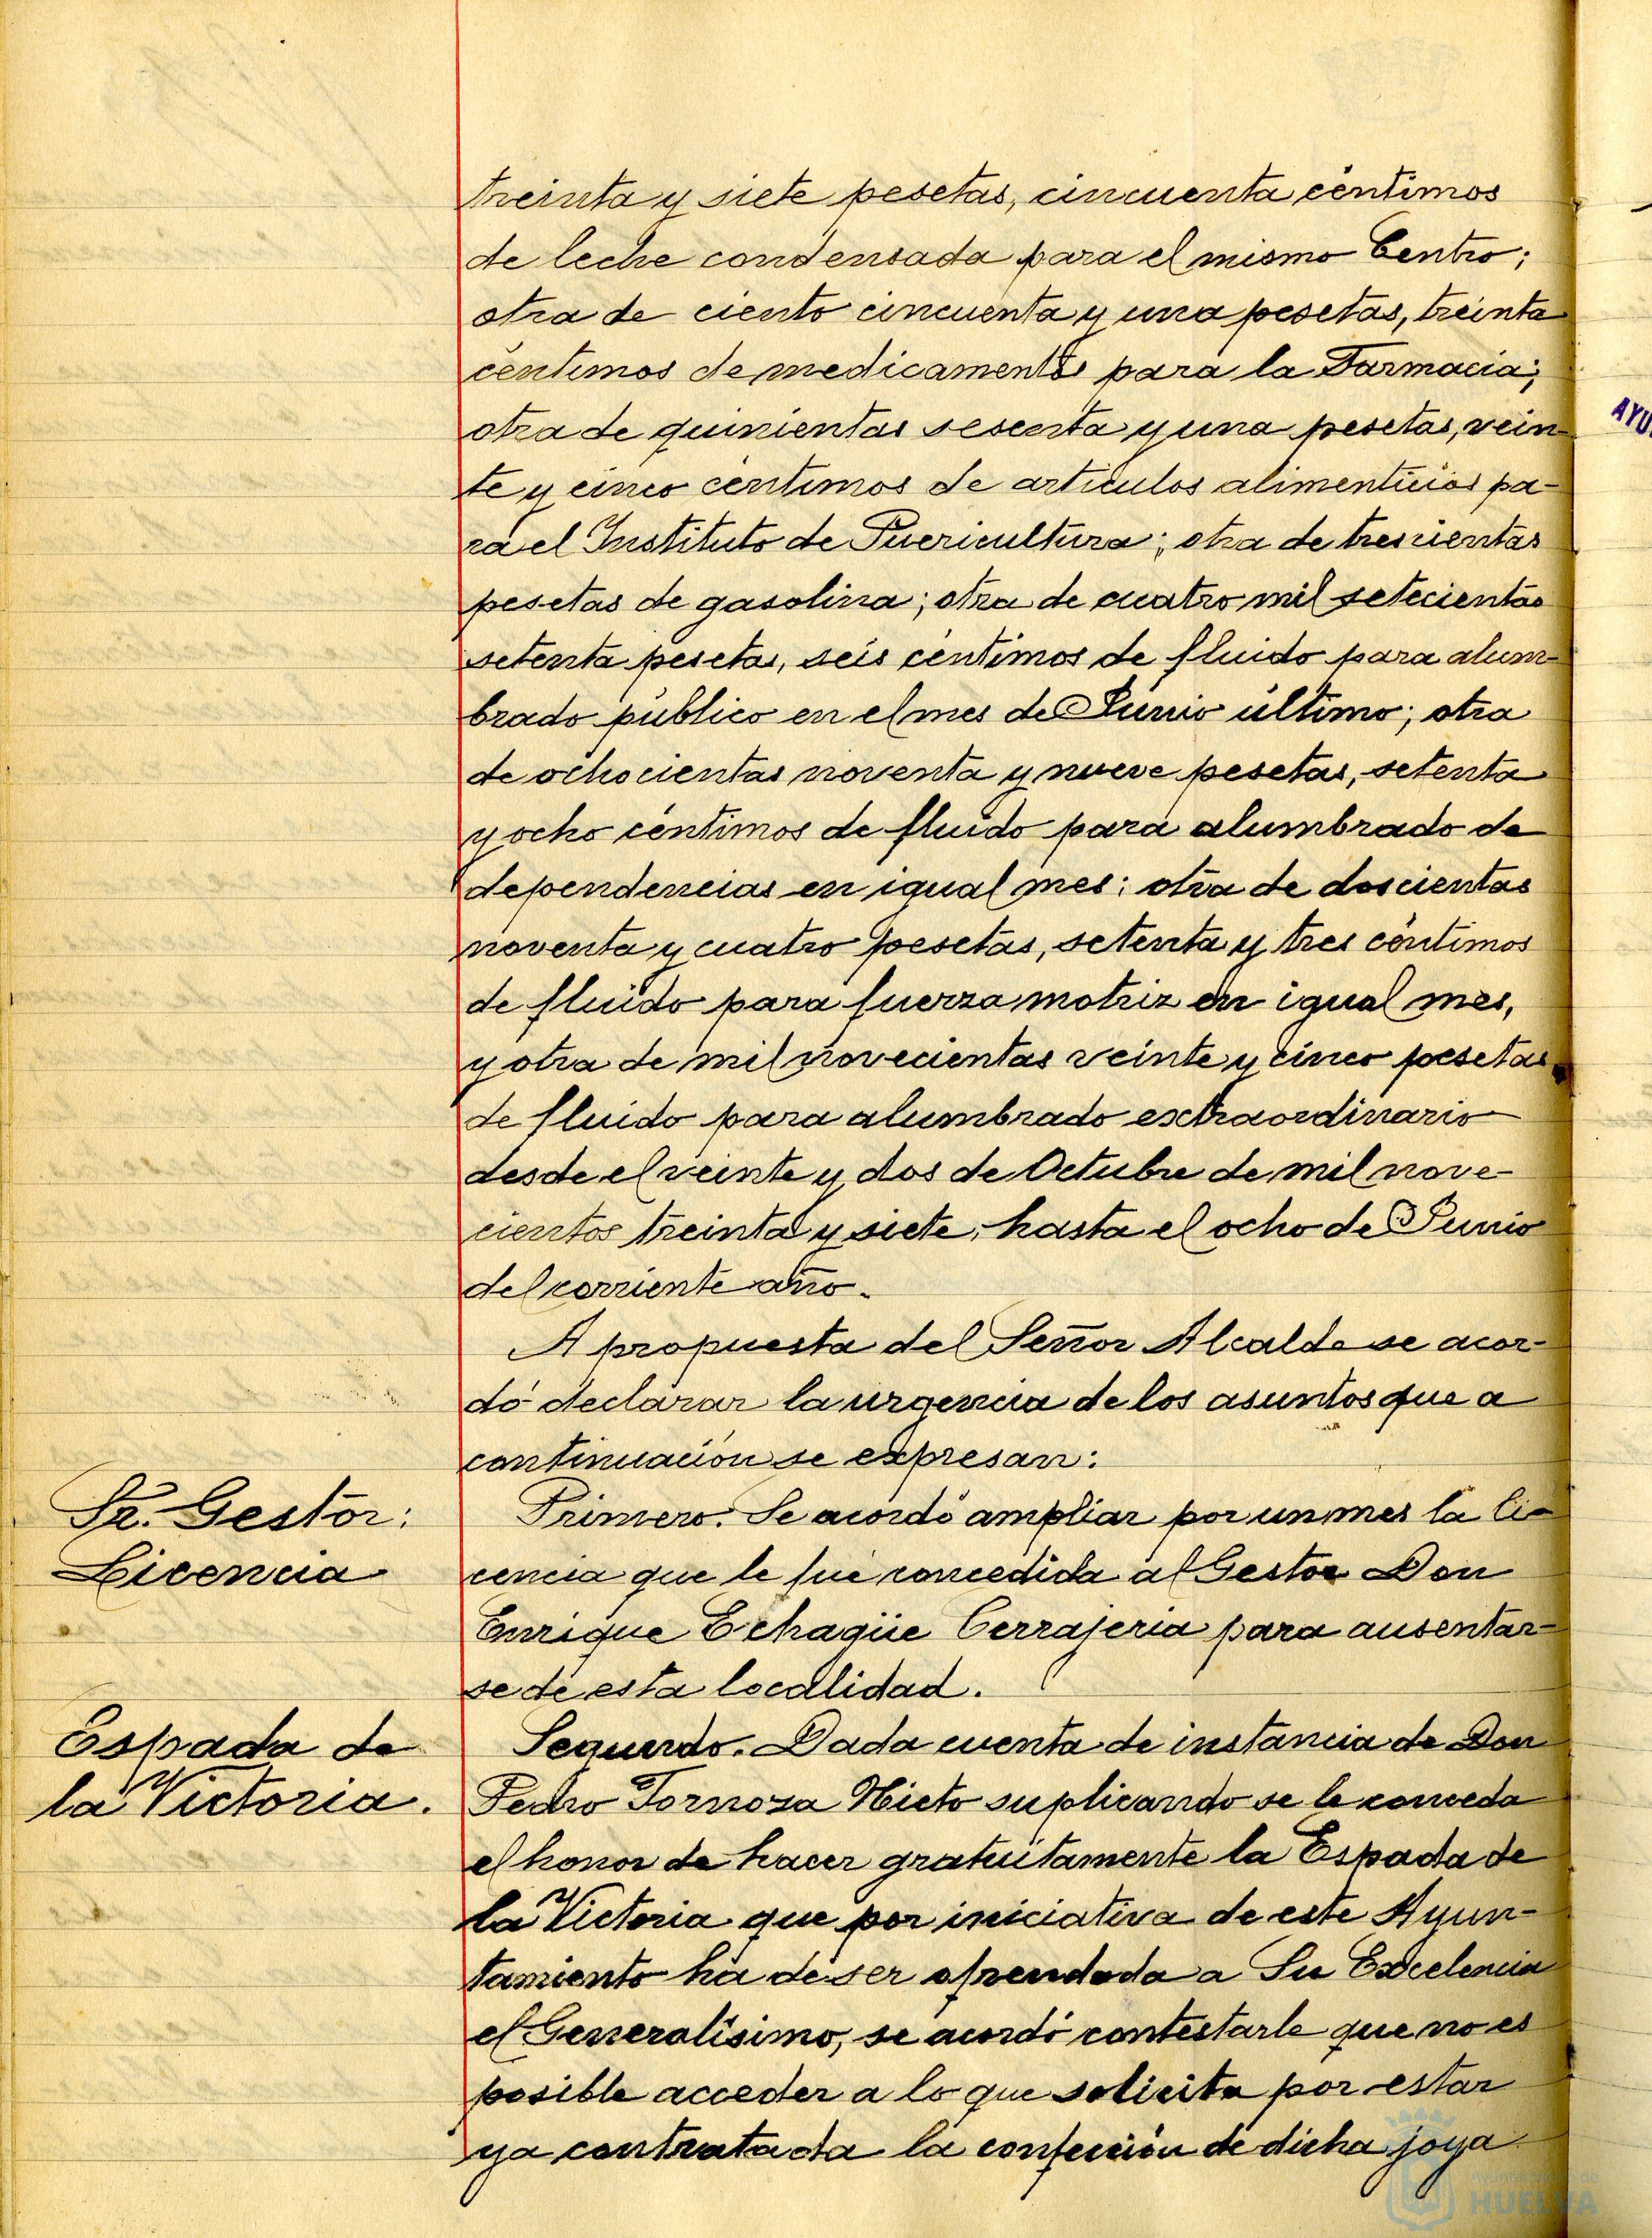 treinta y siete pesetas, cincuenta céntimos
de leche condensada para el mismo Centro;
otra de ciento cincuenta y una pesetas, treinta
céntimos de medicamentos para la Farmacia;
otra de quinientas sesenta y una pesetas, vein-
te y cinco céntimos de artículos alimenticios pa-
ra el Instituto de Puericultura; otra de trescientas
pesetas de gasolina; otra de cuatro mil setecientas
setenta pesetas, seis céntimos de fluido para alum-
brado público en el mes de Junio último; otra
de ochocientas noventa y nueve pesetas, setenta
y ocho céntimos de fluido para alumbrado de
dependencias en igual mes; otra de doscientas
noventa y cuatro pesetas, setenta y tres céntimos
de fluido para fuerza motriz en igual mes,
y otra de mil novecientas veinte y cinco pesetas
de fluido para alumbrado extraordinario
desde el veinte y dos de Octubre de mil nove-
cientos treinta y siete, hasta el ocho de Junio
del corriente año.
A propuesta del Señor Alcalde se acor-
dó declarar la urgencia de los asuntos que a
continuación se expresan:
Sr. Gestor:
Licencia
Primero. Se acordó ampliar por un mes la li-
cencia que le fué concedida al Gestor Don
Enrique Echagüe Cerrajería para ausentar-
se de esta localidad.
Espada de
la Victoria.
Segundo. Dada cuenta de instancia de Don
Pedro Tornoza Nieto suplicando se le conceda
el honor de hacer gratuitamente la Espada de
la Victoria que por iniciativa de este Ayun-
tamiento ha de ser ofrendada a Su Excelencia
el Generalísimo, se acordó contestarle que no es
posible acceder a lo que solicita por estar
ya contratada la confección de dicha joya
AYU
Ayuntamiento de
HUELVA